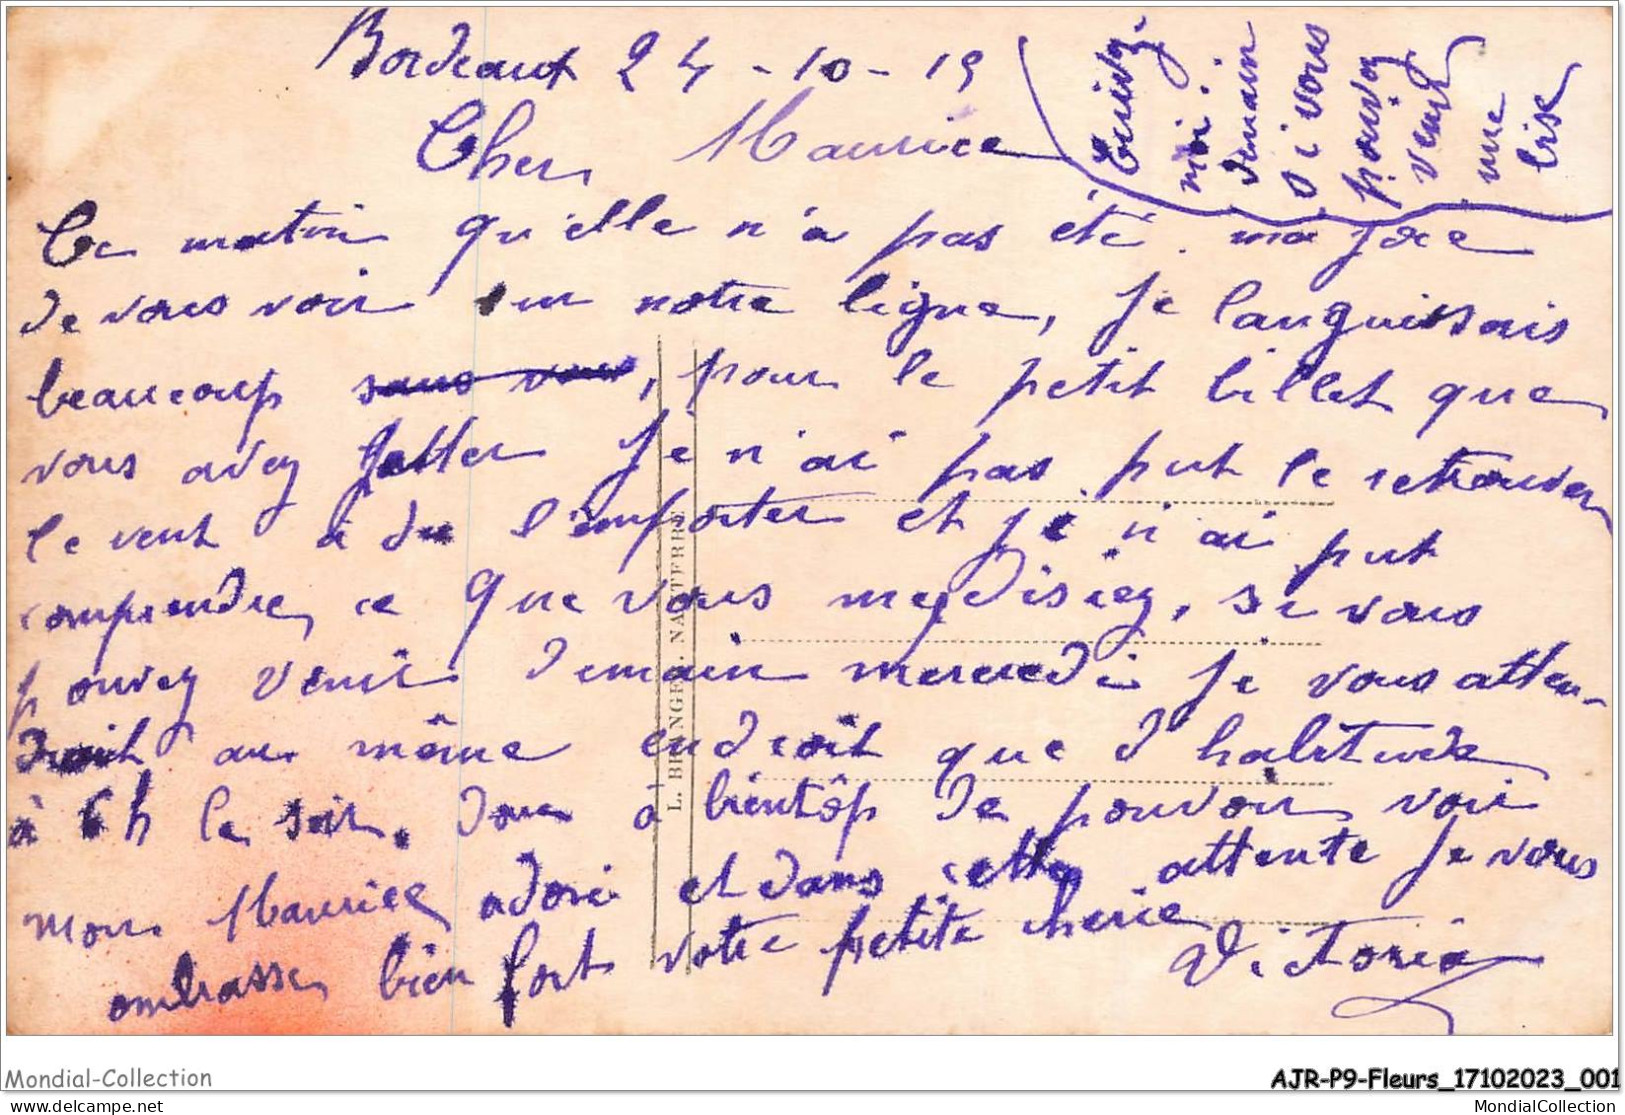 Bordeaux 24-10-19
Cher Maurice
Ecrivez-
moi
demain
si vous
pouvez
venir
une
bise
Ce matin qu'elle n'a pas été ma joie
de vous voir sur notre ligne, Je languissais
beaucoup sans vous, pour le petit billet que
vous avez Jetter Je n'ai pas put le retrouver
le vent à du l'emporter et je n'ai put
comprendre ce que vous me disiez, si vous
pouvez venir demain mercredi Je vous atten-
drait au même endroit que d'habitude
à 6h le soir. donc à bientôp de pouvoir voir
mon Maurice adoré et dans cette attente Je vous
ombrasse bien fort votre petite cherie
Victoria
L. BERANGER. NANTERRE
Mondial-Collection
AJR-P9-Fleurs_17102023_001
delcampe.net
MondialCollection